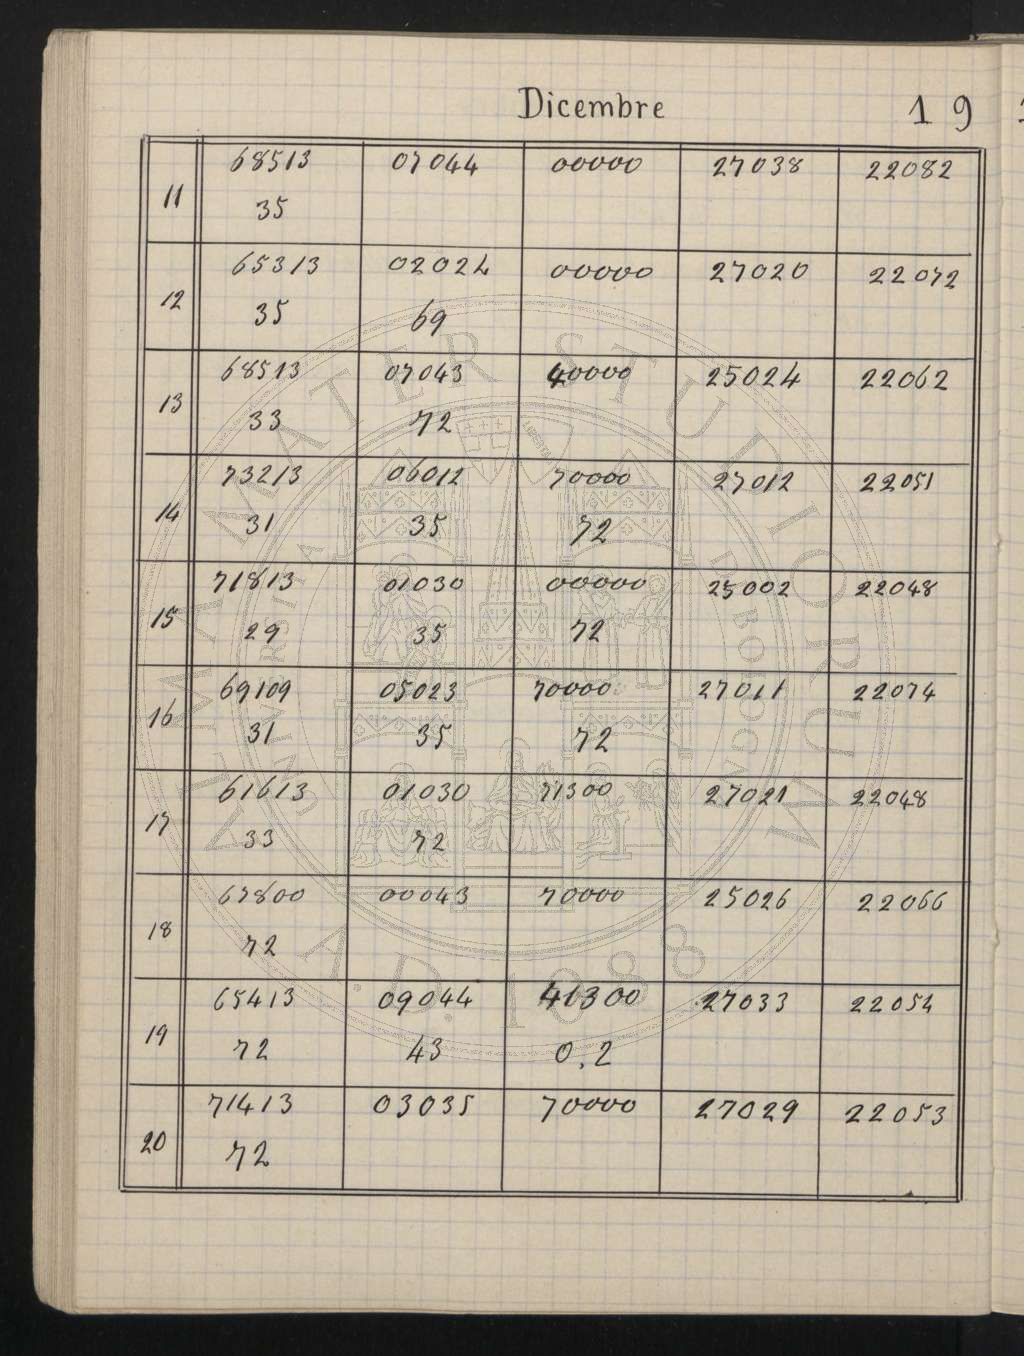 Dicembre 19
11 68513 07044 00000 27038 22082
35
12 65313 02024 00000 27020 22072
35 69
13 68513 07043 40000 25024 22062
33 72
14 73213 06012 70000 27012 22051
31 35 72
15 71813 01030 00000 25002 22048
29 35 72
16 69109 05023 70000 27011 22074
31 35 72
17 61613 01030 71300 27021 22048
33 72
18 67800 00043 70000 25026 22066
72
19 65413 09044 41300 27033 22054
72 43 0.2
20 71413 03035 70000 27029 22053
72
ALMA MATER STUDIORUM
A.D. 1088